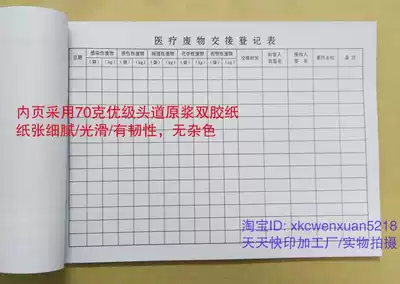 医疗废物交接登记表
日期 感染性废物 损伤性废物 病理性废物 化学性废物 药物性废物 交接时间
(袋) (kg) (袋) (kg) (袋) (kg) (袋) (kg) (袋) (kg)
内页采用70克优级头道原浆双胶纸
纸张细腻/光滑/有韧性，无杂色
淘宝ID: xkcwenxuan5218
天天快印加工厂/实物拍摄